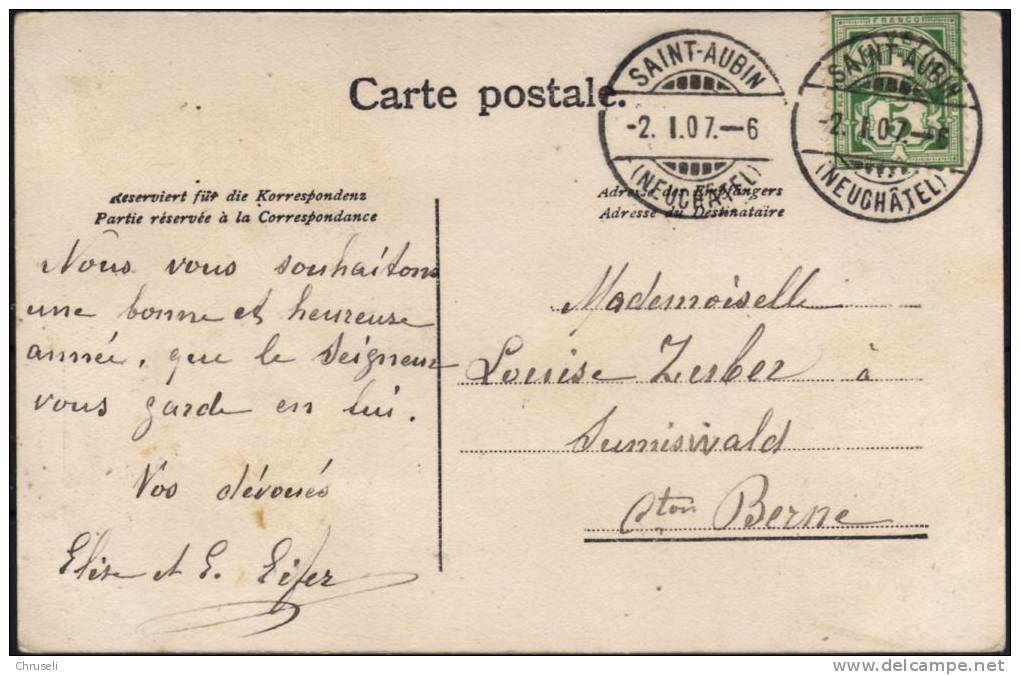 Carte postale.
SAINT-AUBIN
-2. I. 07.-6
(NEUCHÂTEL)
FRANCO
5
SAINT-AUBIN
-2. I. 07.-6
(NEUCHÂTEL)
Reserviert für die Korrespondenz
Partie réservée à la Correspondance
Adresse des Empfängers
Adresse du Destinataire
Nous vous souhaitons
une bonne et heureuse
année, que le Seigneur
vous garde en lui.
Vos dévoués
Elise et E.
Mademoiselle
Louise Zurber à
Sumiswald
Cton Berne
Chruseli
www.delcampe.net